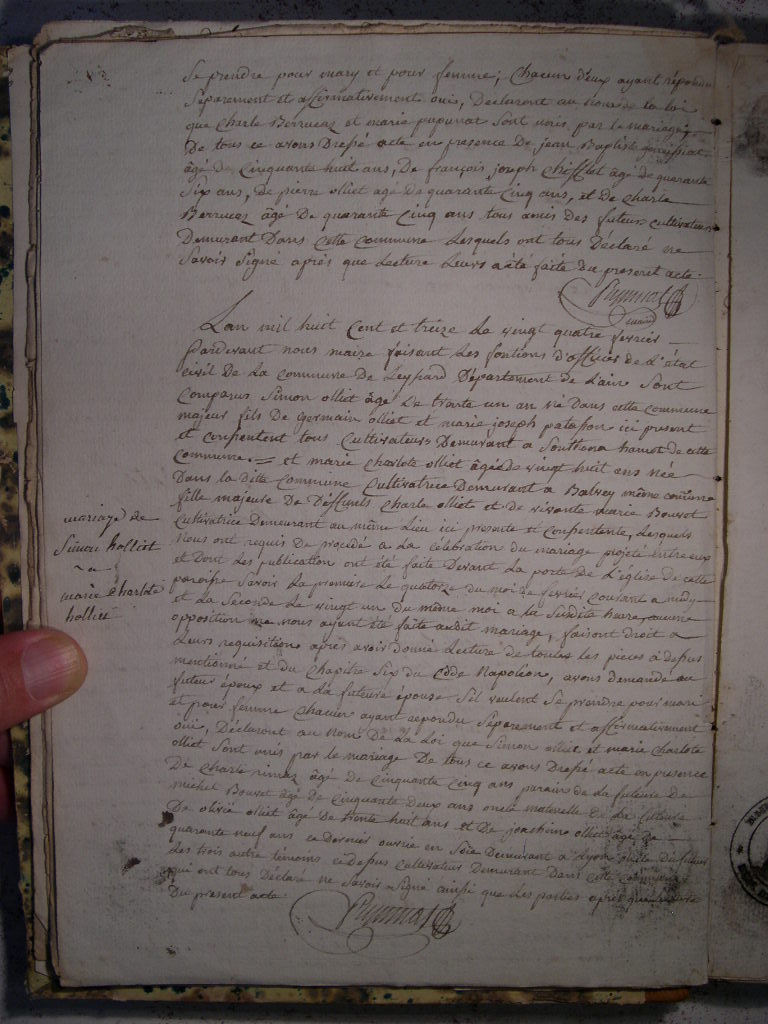 Se prendre pour mary et pour femme, chacun d'eux ayant repondu
Separement et affirmativement oui, Declaront au nom de la loi
que charle Berrucaz et marie pupunat sont unis par le mariage,
De tous ce avons Dresse acte en presence De jean Baptist
âgé de Cinquante huit ans, De françois joseph Chifflet âgé de quarante
Six ans, de pierre olliet agé de quarante Cinq ans, et De Charle
Berrucaz âgé De quarante Cinq ans tous amis Des futurs cultivateurs
Demeurant Dans Cette commune Lesquels ont tous Déclaré ne
Savoir Signé après que Lecture Leurs a été faite Du present acte.
maire
Lan mil huit Cent et treize Le vingt quatre fevrier
Pardevant nous maire faisant Les fontions d'officier de L'état
civil De La commune De Leyssard Département de L'ain Sont
Comparus Simon olliet âgé De trante un an né Dans cette commune
majeur fils De Germain olliet et marie joseph patasson ici present
et consentent tous Cultivateurs Demeurant a Soulhona hamot de cette
Commune. = et marie Charlote olliet âgée De vingt huit ans née
Dans La Ditte Commune Cultivatrice Demeurant a Balvey même commune
fille majeure De Deffunts Charle olliet et de vivante marie Bouvet
Cultivatrice Demeurant au même Lieu ici presente et Consentente, Lesquels
Nous ont requis De procedé a La Célébration Du mariage projeté entre eux
et Dont Les publication ont été faite Devant La porte De L'église De cette
paroisse Savoir La premiere Le quatorze Du moi De fevrier courant a midy
et La Seconde Le vingt un Du même moi a La Susdite heure, aucune
opposition ne nous ayant été faite audit mariage, faisont Droit a
Leurs requisitions après avoir Donné Lecture De toutes Les pieces cy Depus
mentionné et Du Chapitre Six Du Code Napoléon, avons demandé au
futur époux et a La future épouse S'il veulent Se prendre pour mari
et pour femme Chacun ayant repondu Separement et affirmativement
oui, Declaront au Nom De La Loi que Simon olliet et marie Charlote
olliet Sont unis par le mariage De tous ce avons Dressé acte en presence
De Charle âgé De Cinquante Cinq ans parain De La future De
michel Bouvet âgé De Cinquante Deux ans oncle maternelle De La future
De olivié olliet âgé De trente huit ans et De joachim olliet âgé De
quarante neuf ans ce Dernier ouvrié en Soie Demeurant a Lyon
Les trois autre témoins ci Depus Cultivateur Demeurant Dans Cette Commune
qui ont tous Déclaré ne Savoir Signé ainsi que Des parties après que Lecture
Du present acte
mariage de
Simon holliet
a
marie charlote
holliet